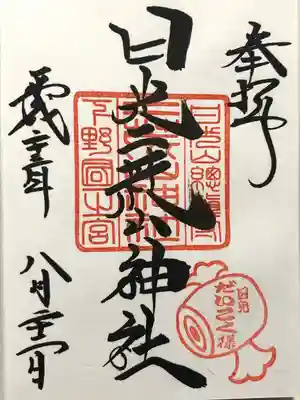 奉拝
日光山總鎮守
日光二荒山神社
二荒山神社
下野國一之宮
日光
だいこく様
八月